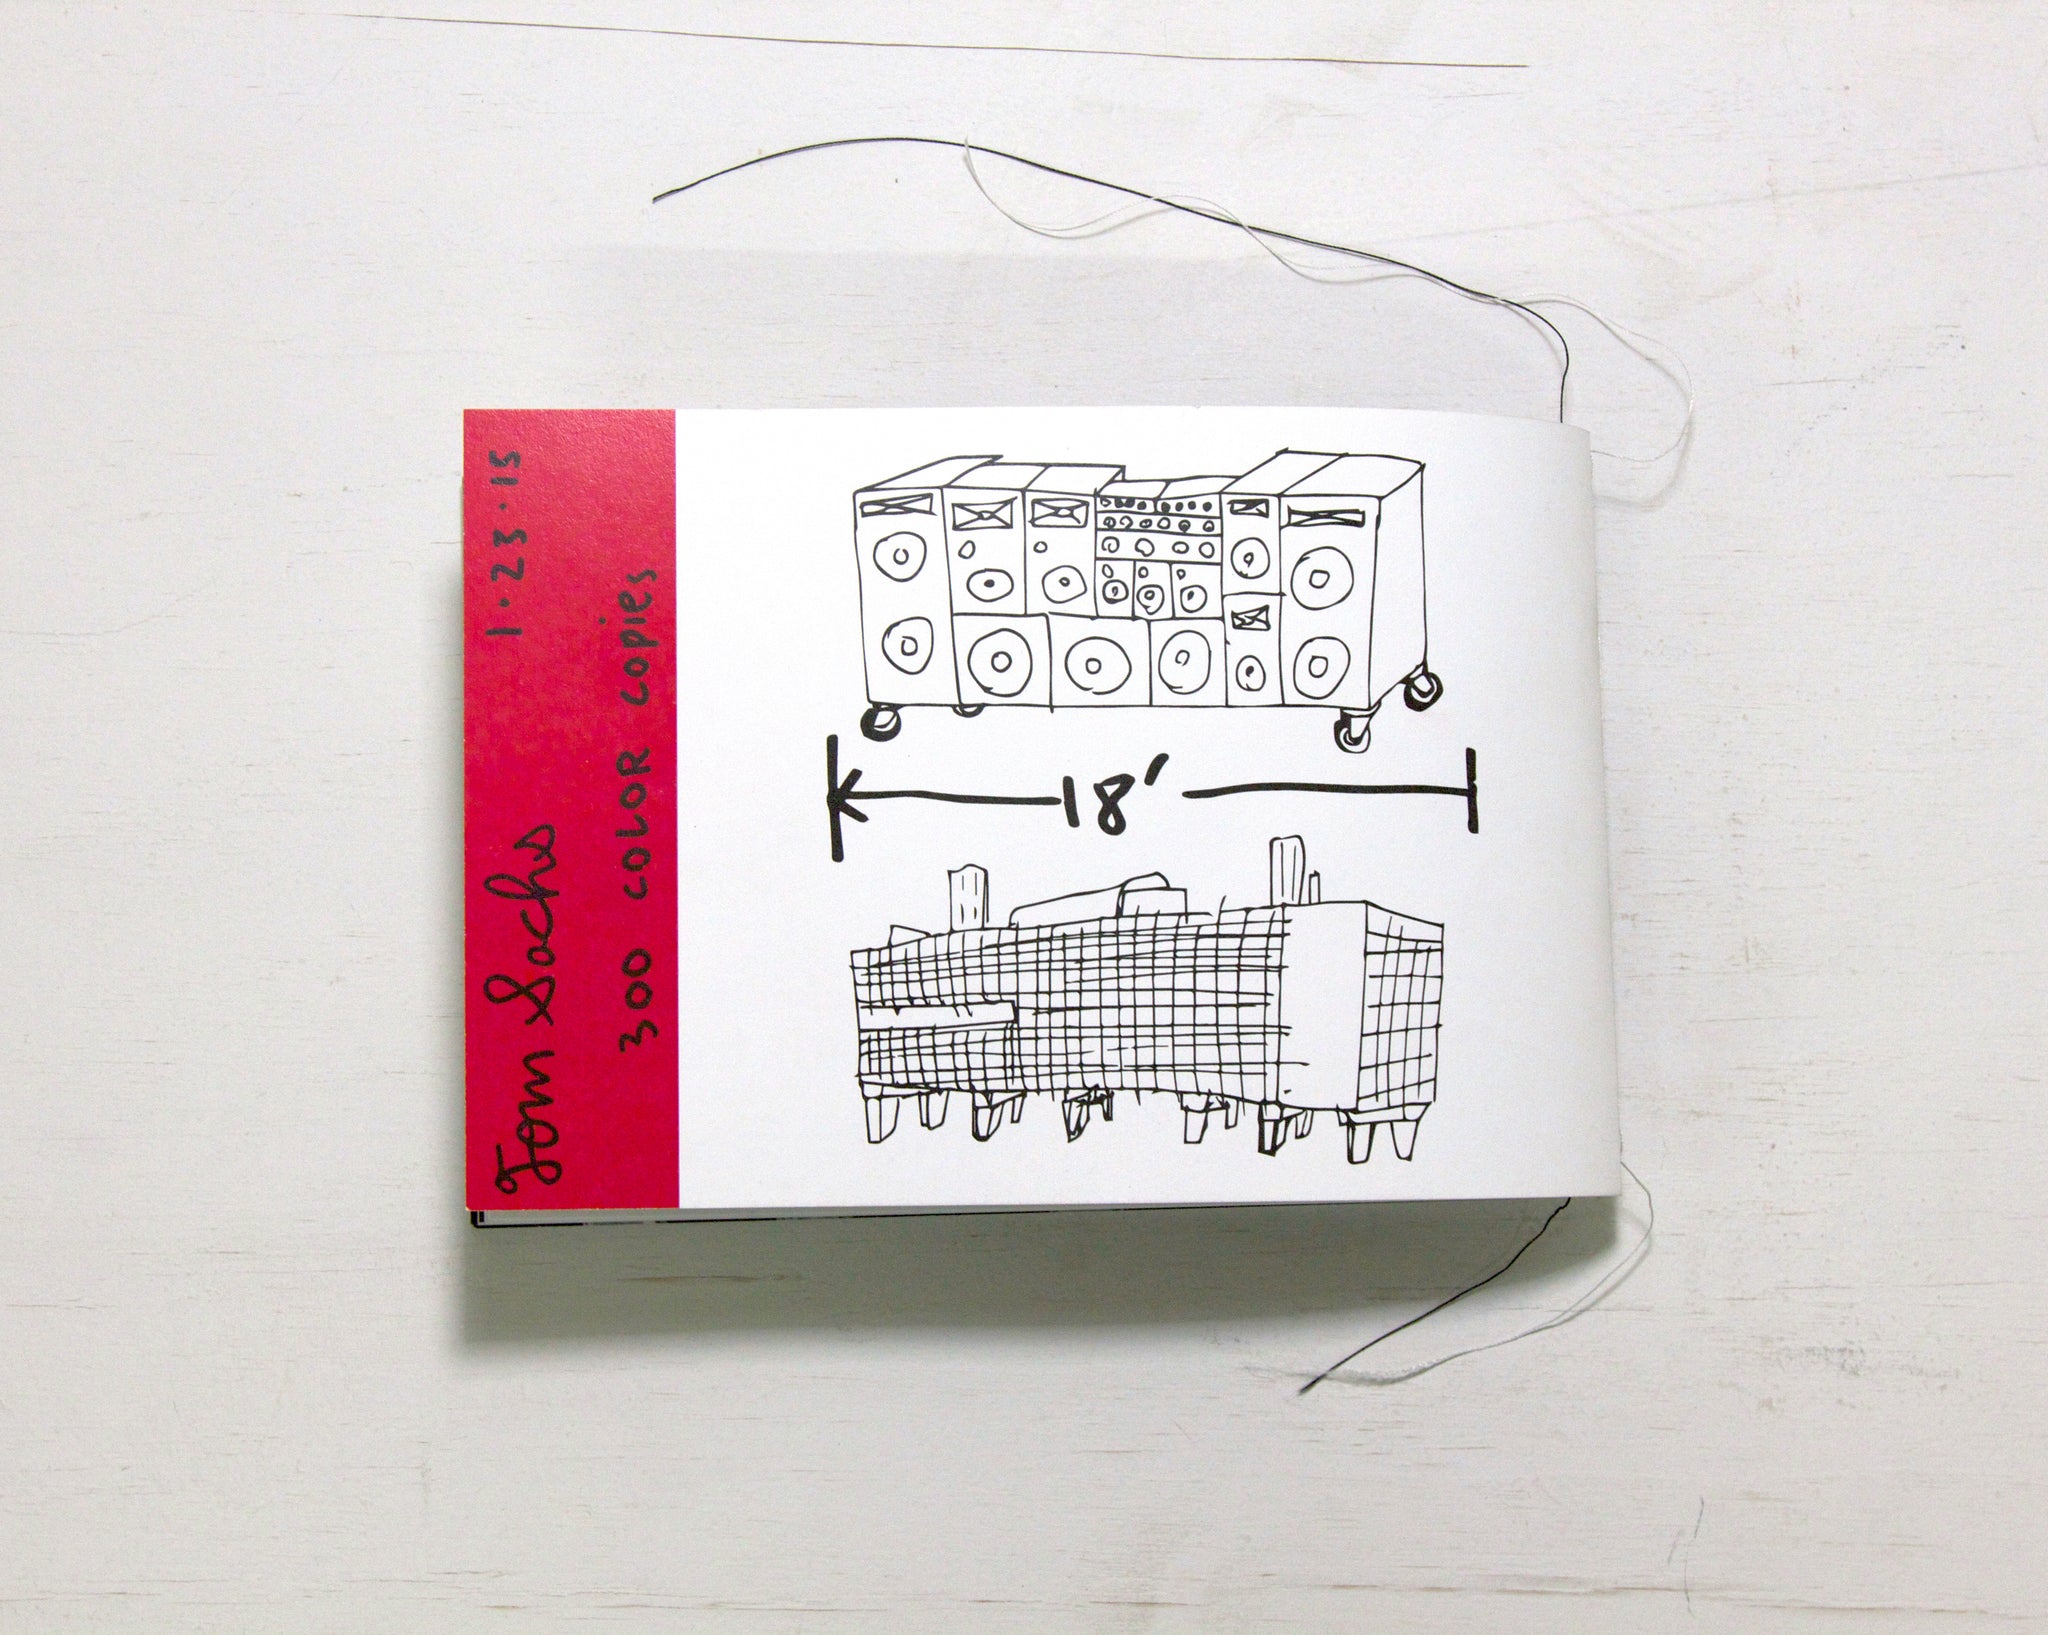 Tom Sachs 1·23·15
300 COLOR COPIES
18'